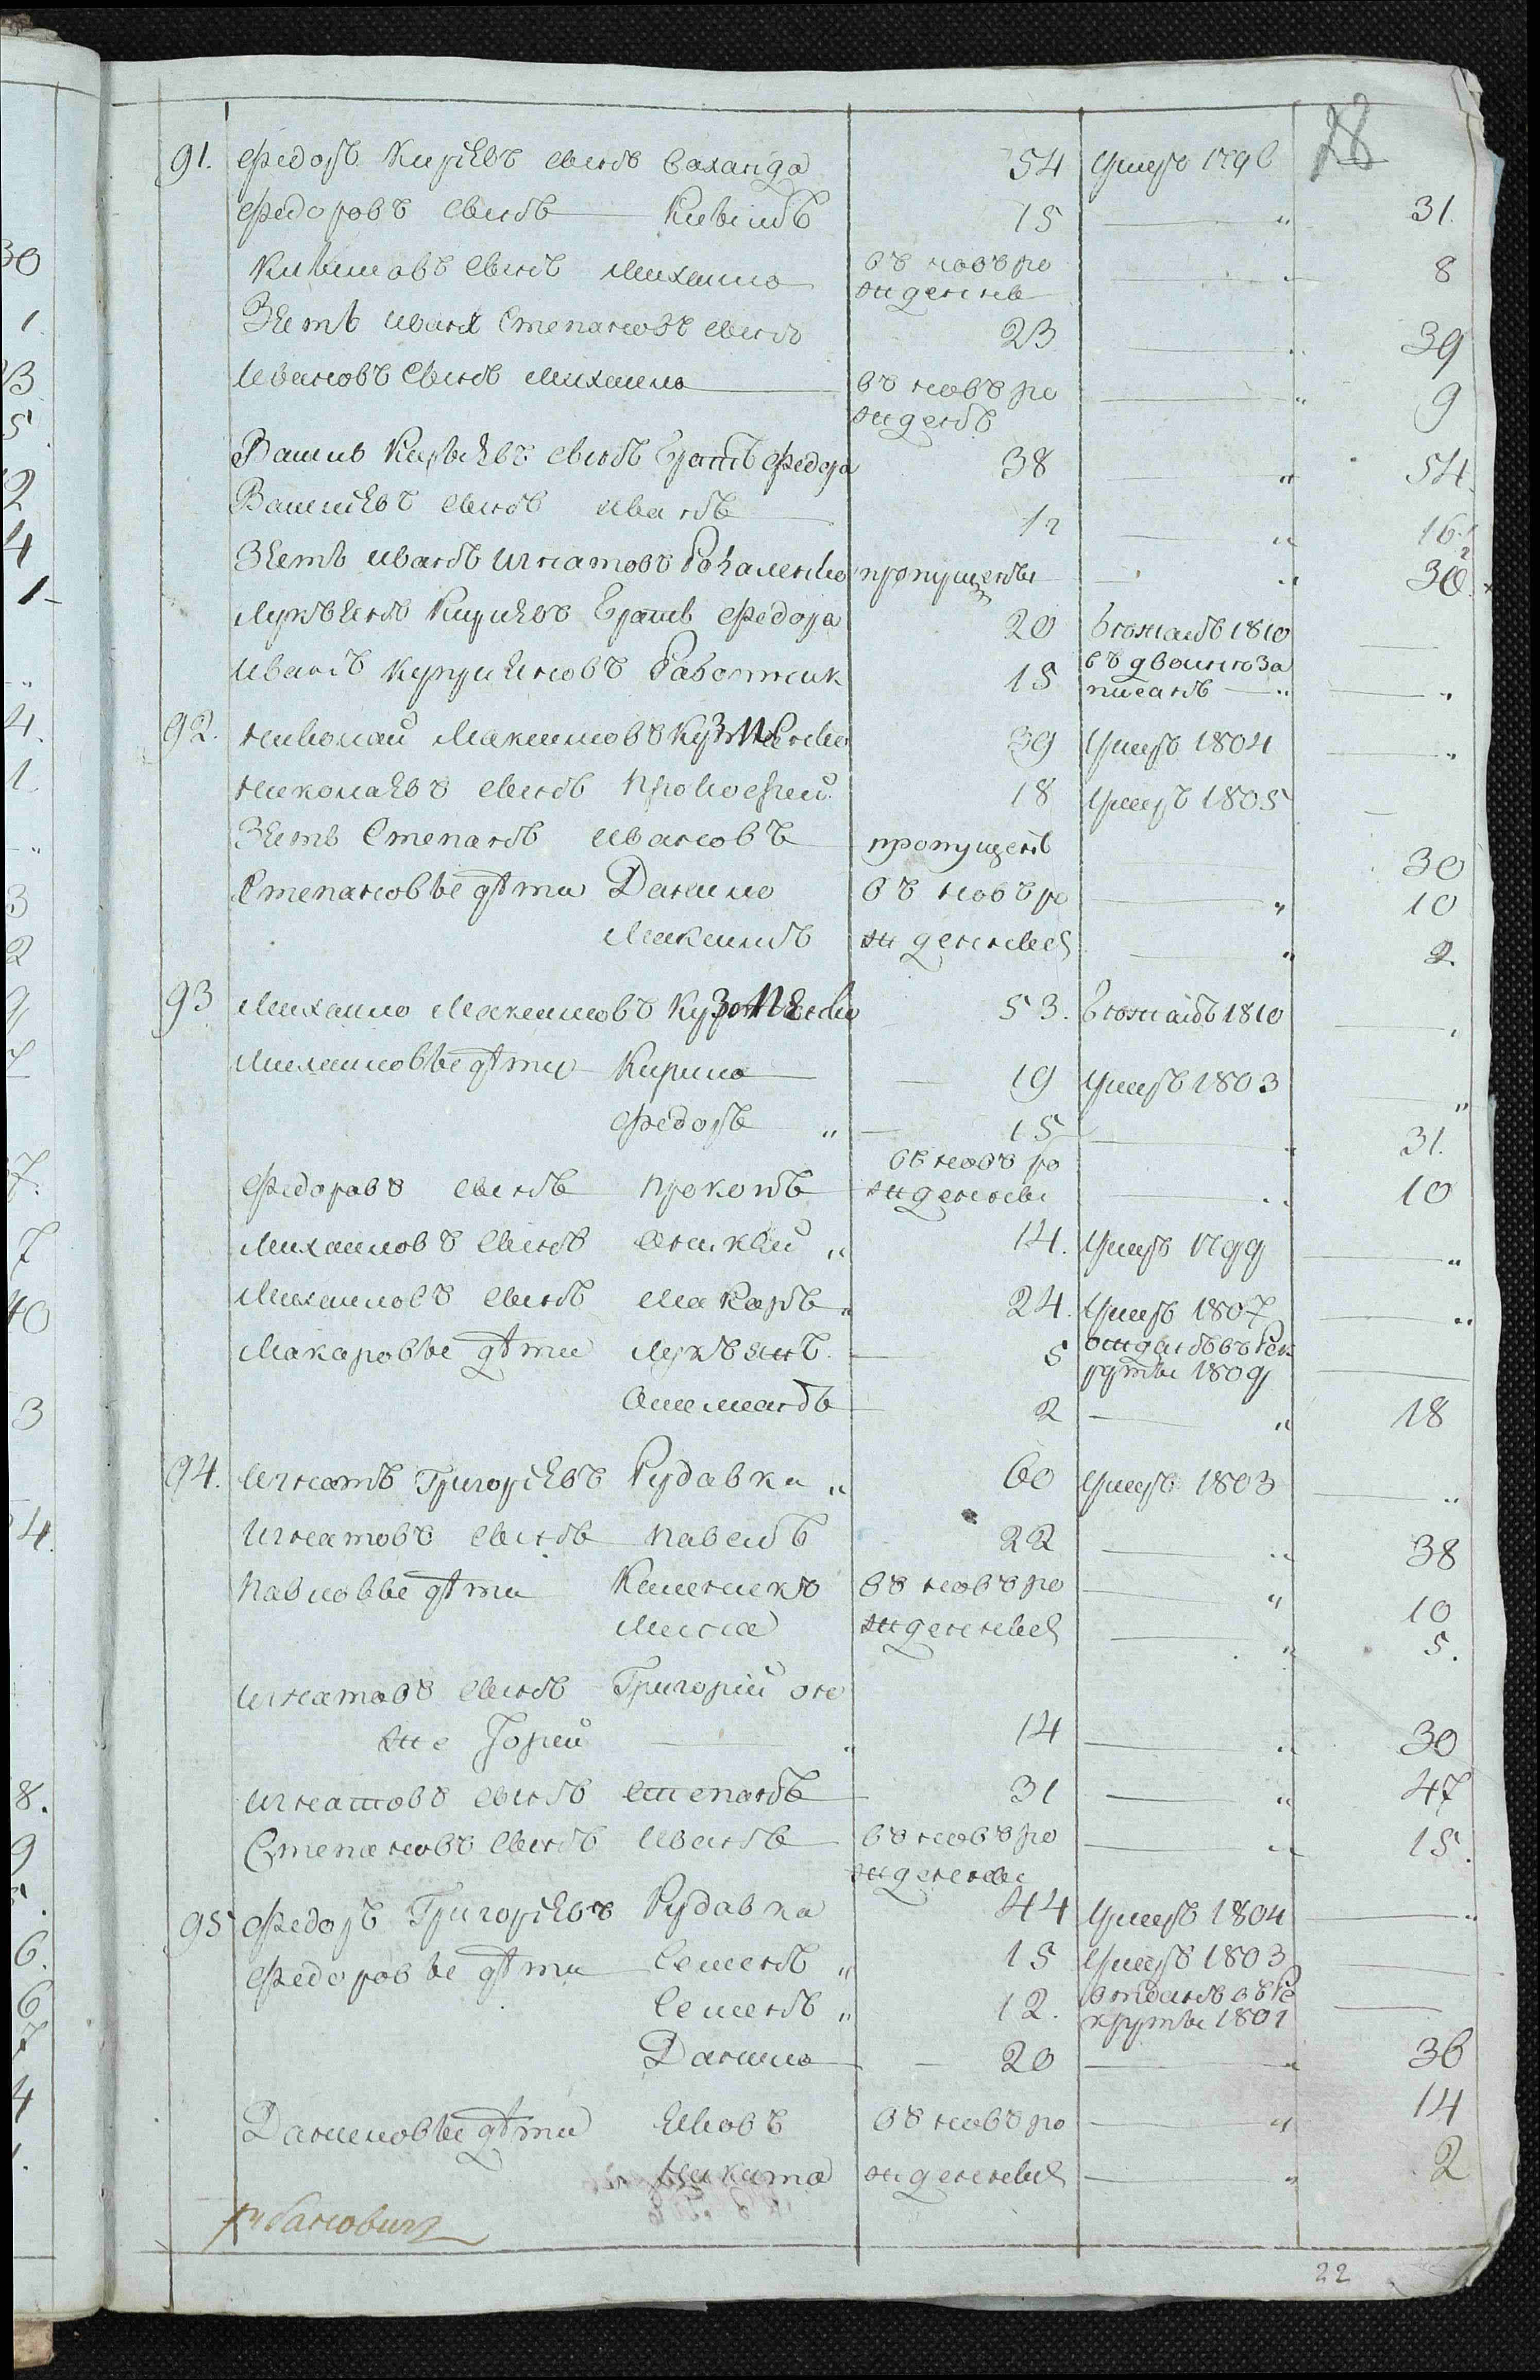 28
91. Федоръ Кирѣевъ сынъ Саханда 54 умеръ 1796
Федоровъ сынъ Климъ 15 — „ 31.
Климовъ сынъ Михайло въ новъ ро — „ 8
жденны
Зять Иванъ Степановъ сынъ 23 — „ 39
Ивановъ сынъ Михайло въ новъ ро — „ 9
жденъ
Василь Кирѣевъ сынъ братъ Федора 38 — „ 54.
Василіевъ сынъ Иванъ — „ 16.
Зять Иванъ Игнатовъ пропущенъ — „ 30.
Лукъянъ Кириевъ братъ Федора 20 1810 —
Иванъ Работник 15 въ двойнѣ за
писанъ — „ — „
92. Николай Максимовъ 39 умеръ 1804 — „
Николаевъ сынъ Прокофей 18 умеръ 1805 —
Зять Степанъ Ивановъ пропущенъ 30
Степановы дѣти Данило въ новъ ро — „ 10
Максимъ жденные — „ 2.
93 Михайло Максимовъ 53. 1810 — „
Михайловы дѣти Кирило — 19 умеръ 1803 — „
Федоръ „ — 15 — „ 31.
въ новъ ро
Федоровъ сынъ Прокопъ жденны — „ 10
Михайловъ сынъ „ 14. умеръ 1799 — „
Михайловъ сынъ Макаръ „ 24. умеръ 1807 — „
Макаровы дѣти Лукъянъ — 5 отданъ въ рек
руты 1809 —
2 — „ 18
94. Игнатъ Григорѣевъ Рудавка „ 60 умеръ 1803 — „
Игнатовъ сынъ Павелъ 22 — „ 38
Павловы дѣти въ новъ ро — „ 10
жденные — „ 5.
Игнатовъ сынъ Григорій онъ
же 14 — „ 30
Игнатовъ сынъ Степанъ 31 — „ 47
Степановъ сынъ Иванъ въ новъ ро — „ 15.
жденны
95 Федоръ Григорѣевъ Рудавка 44 умеръ 1804 — „
Федоровы дѣти Семенъ „ 15 умеръ 1803 —
Семенъ „ 12. отданъ въ ре
круты 1801 —
Данило — 20 — „ 36
Даниловы дѣти Яковъ въ новъ ро — „ 14
Никита жденные — „ 2
22